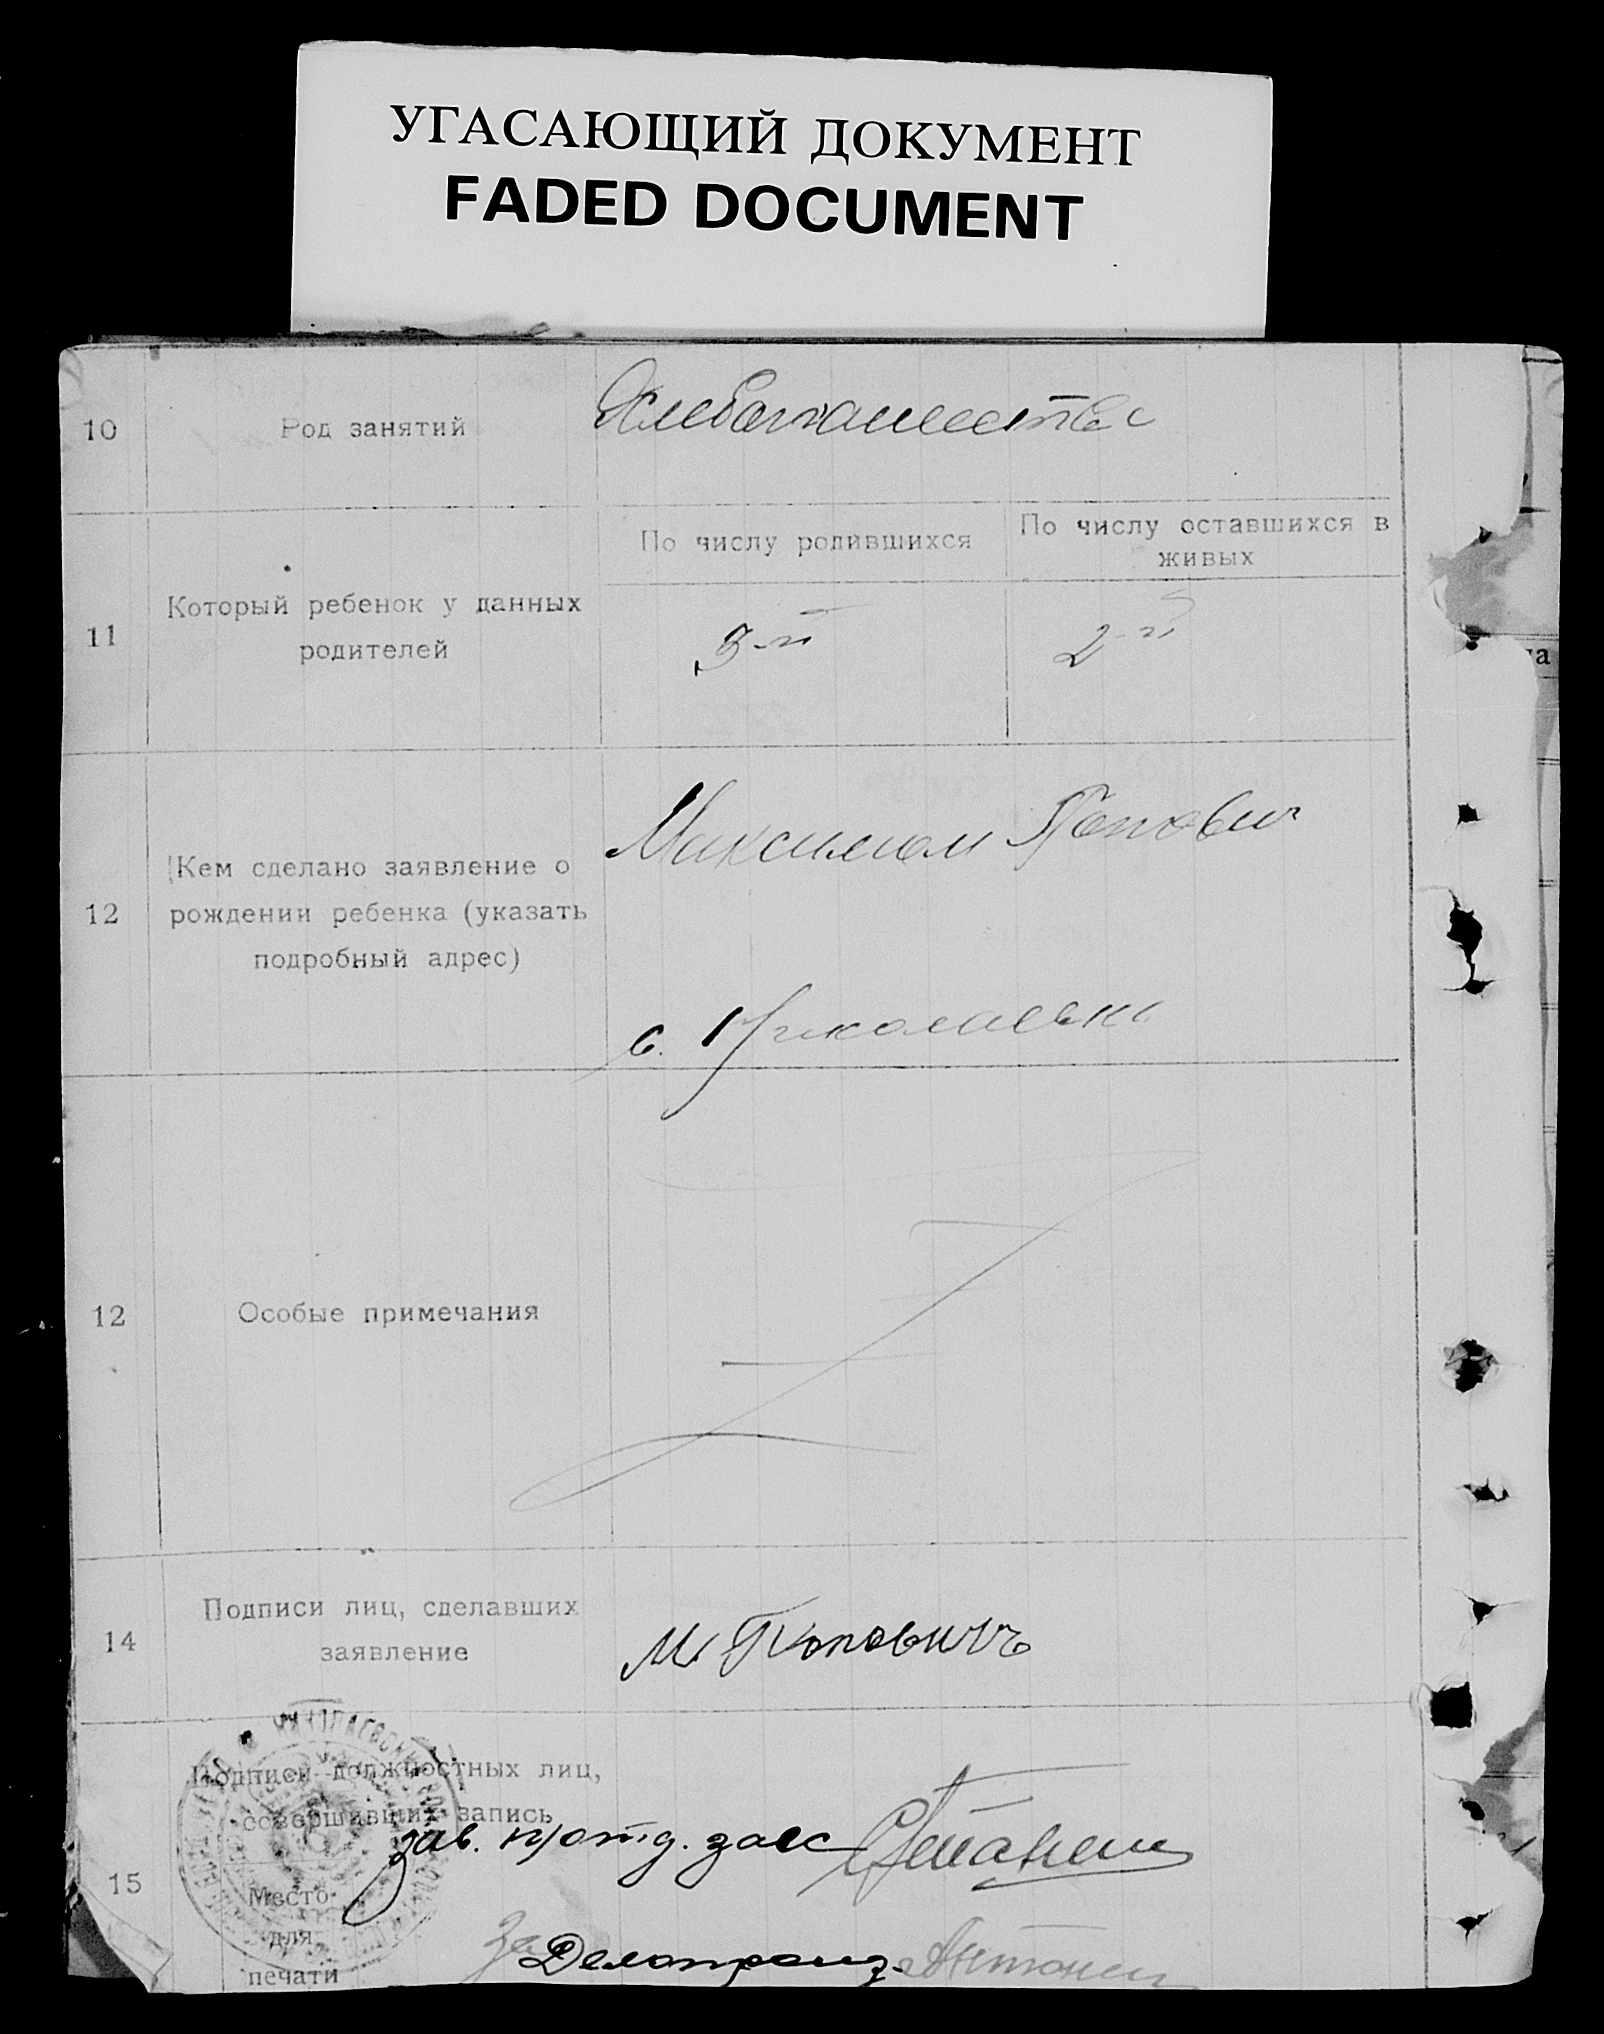 УГАСАЮЩИЙ ДОКУМЕНТ
FADED DOCUMENT
10
Род занятий
11
Который ребенок у данных
родителей
По числу родившихся
По числу оставшихся в
живых
3-й
2-й
12
Кем сделано заявление о
рождении ребенка (указать
подробный адрес)
Максимом Попович
с.
12
Особые примечания
14
Подписи лиц, сделавших
заявление
М Поповичъ
15
Подписи должностных лиц,
совершивших запись
зав. п/отд. загс
Место
для
печати
За Делопроиз.